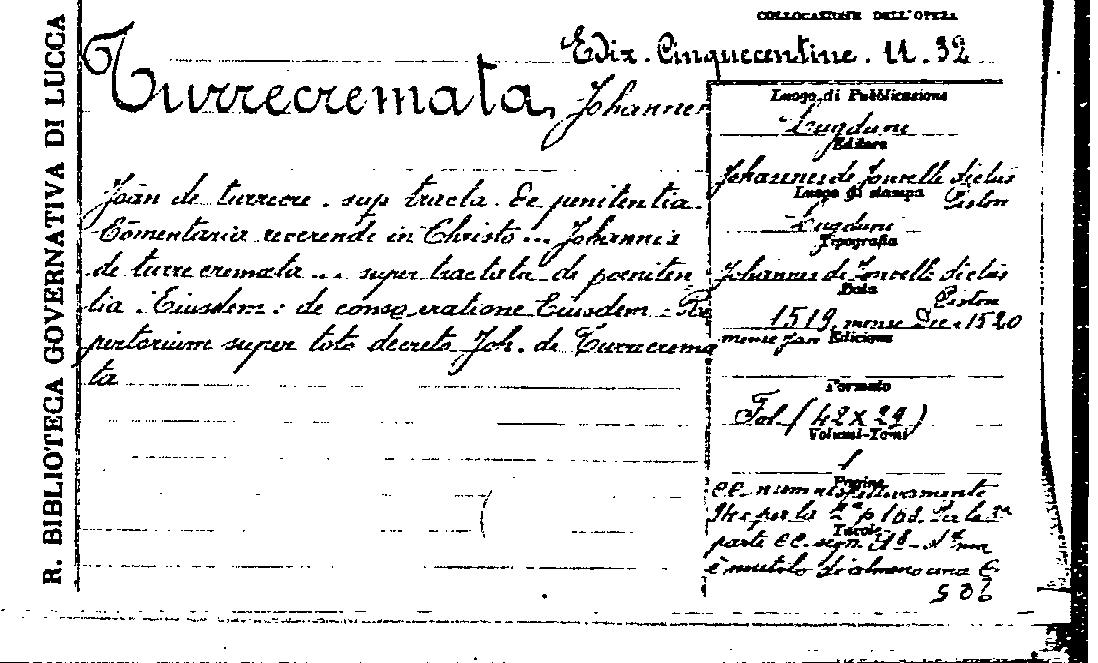 R. BIBLIOTECA GOVERNATIVA DI LUCCA
COLLOCAZIONE DELL'OPERA
Ediz. Cinquecentine. U. 32
Turrecremata, Johannes
Joan de turrecre. sup tracta. de penitentia.
Comentaria reverende in Christo... Johannis
de turre cremata... super tractatu de poeniten
tia. Eiusdem: de consecratione Eiusdem - Re
pertorium super toto decreto Joh. de Turrecrema
ta
Luogo di Pubblicazione
Lugduni
Editore
Johannes de Jonvelle dictus
Piston
Luogo di stampa
Lugduni
Tipografia
Johannes de Jonvelle dictus
Piston
Data
1519, mense Dec. 1520
mense Jan
Edizione
Formato
Fol. (42 x 29)
Volumi-Tomi
1
Pagine
cc. num
per la 2ª p 108. Per la 3ª
Tavole
parte cc. segn.
è mutilo di almeno una c.